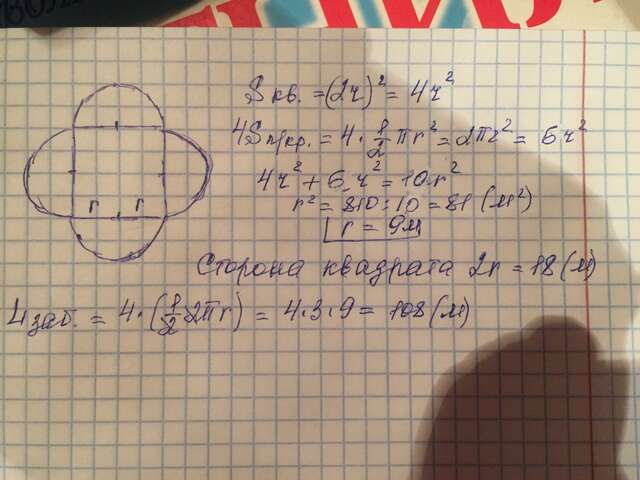 Sкв. = (2r)² = 4r²
4Sп/кр. = 4 · 1/2 πr² = 2πr² = 6r²
4r² + 6r² = 10r²
r r
r² = 810 : 10 = 81 (м²)
r = 9м
Сторона квадрата 2r = 18 (м)
Lзаб. = 4 · (1/2 2πr) = 4·3·9 = 108 (м)